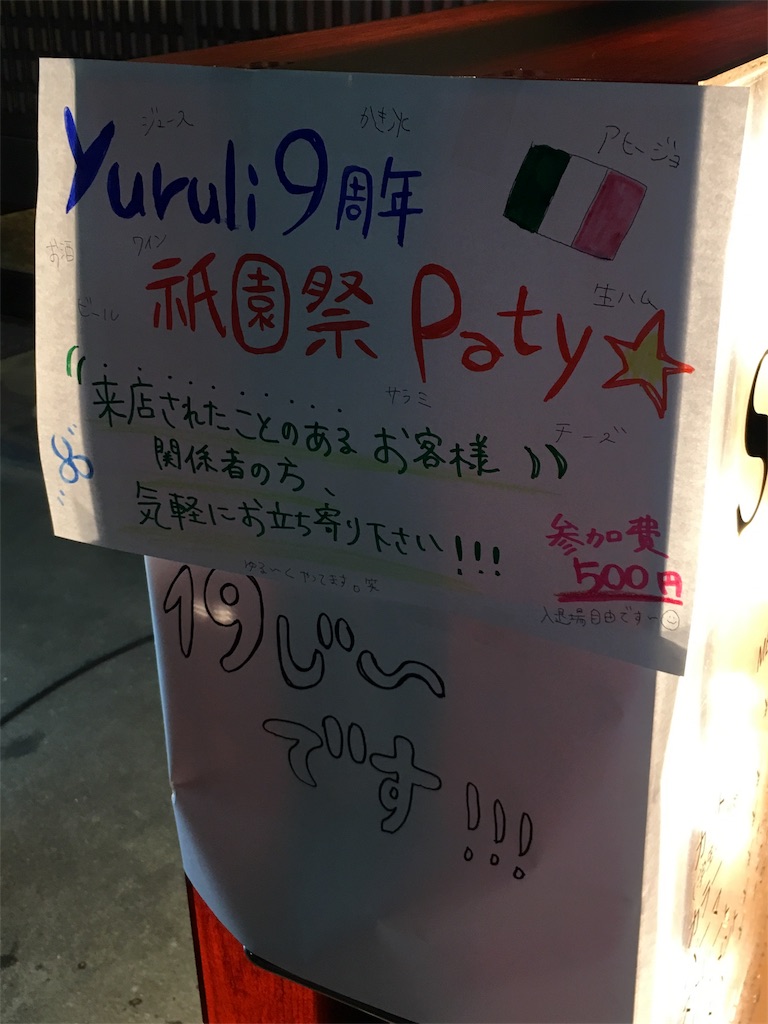 ジュース
かき氷
アヒージョ
Yuruli 9周年
お酒
ワイン
ビール
生ハム
祇園祭 Paty☆
サラミ
チーズ
《来店されたことのあるお客様》
関係者の方、
気軽にお立ち寄り下さい!!!
参加費
500円
ゆる〜くやってます。笑
入退場自由です〜
19じ〜
です!!!